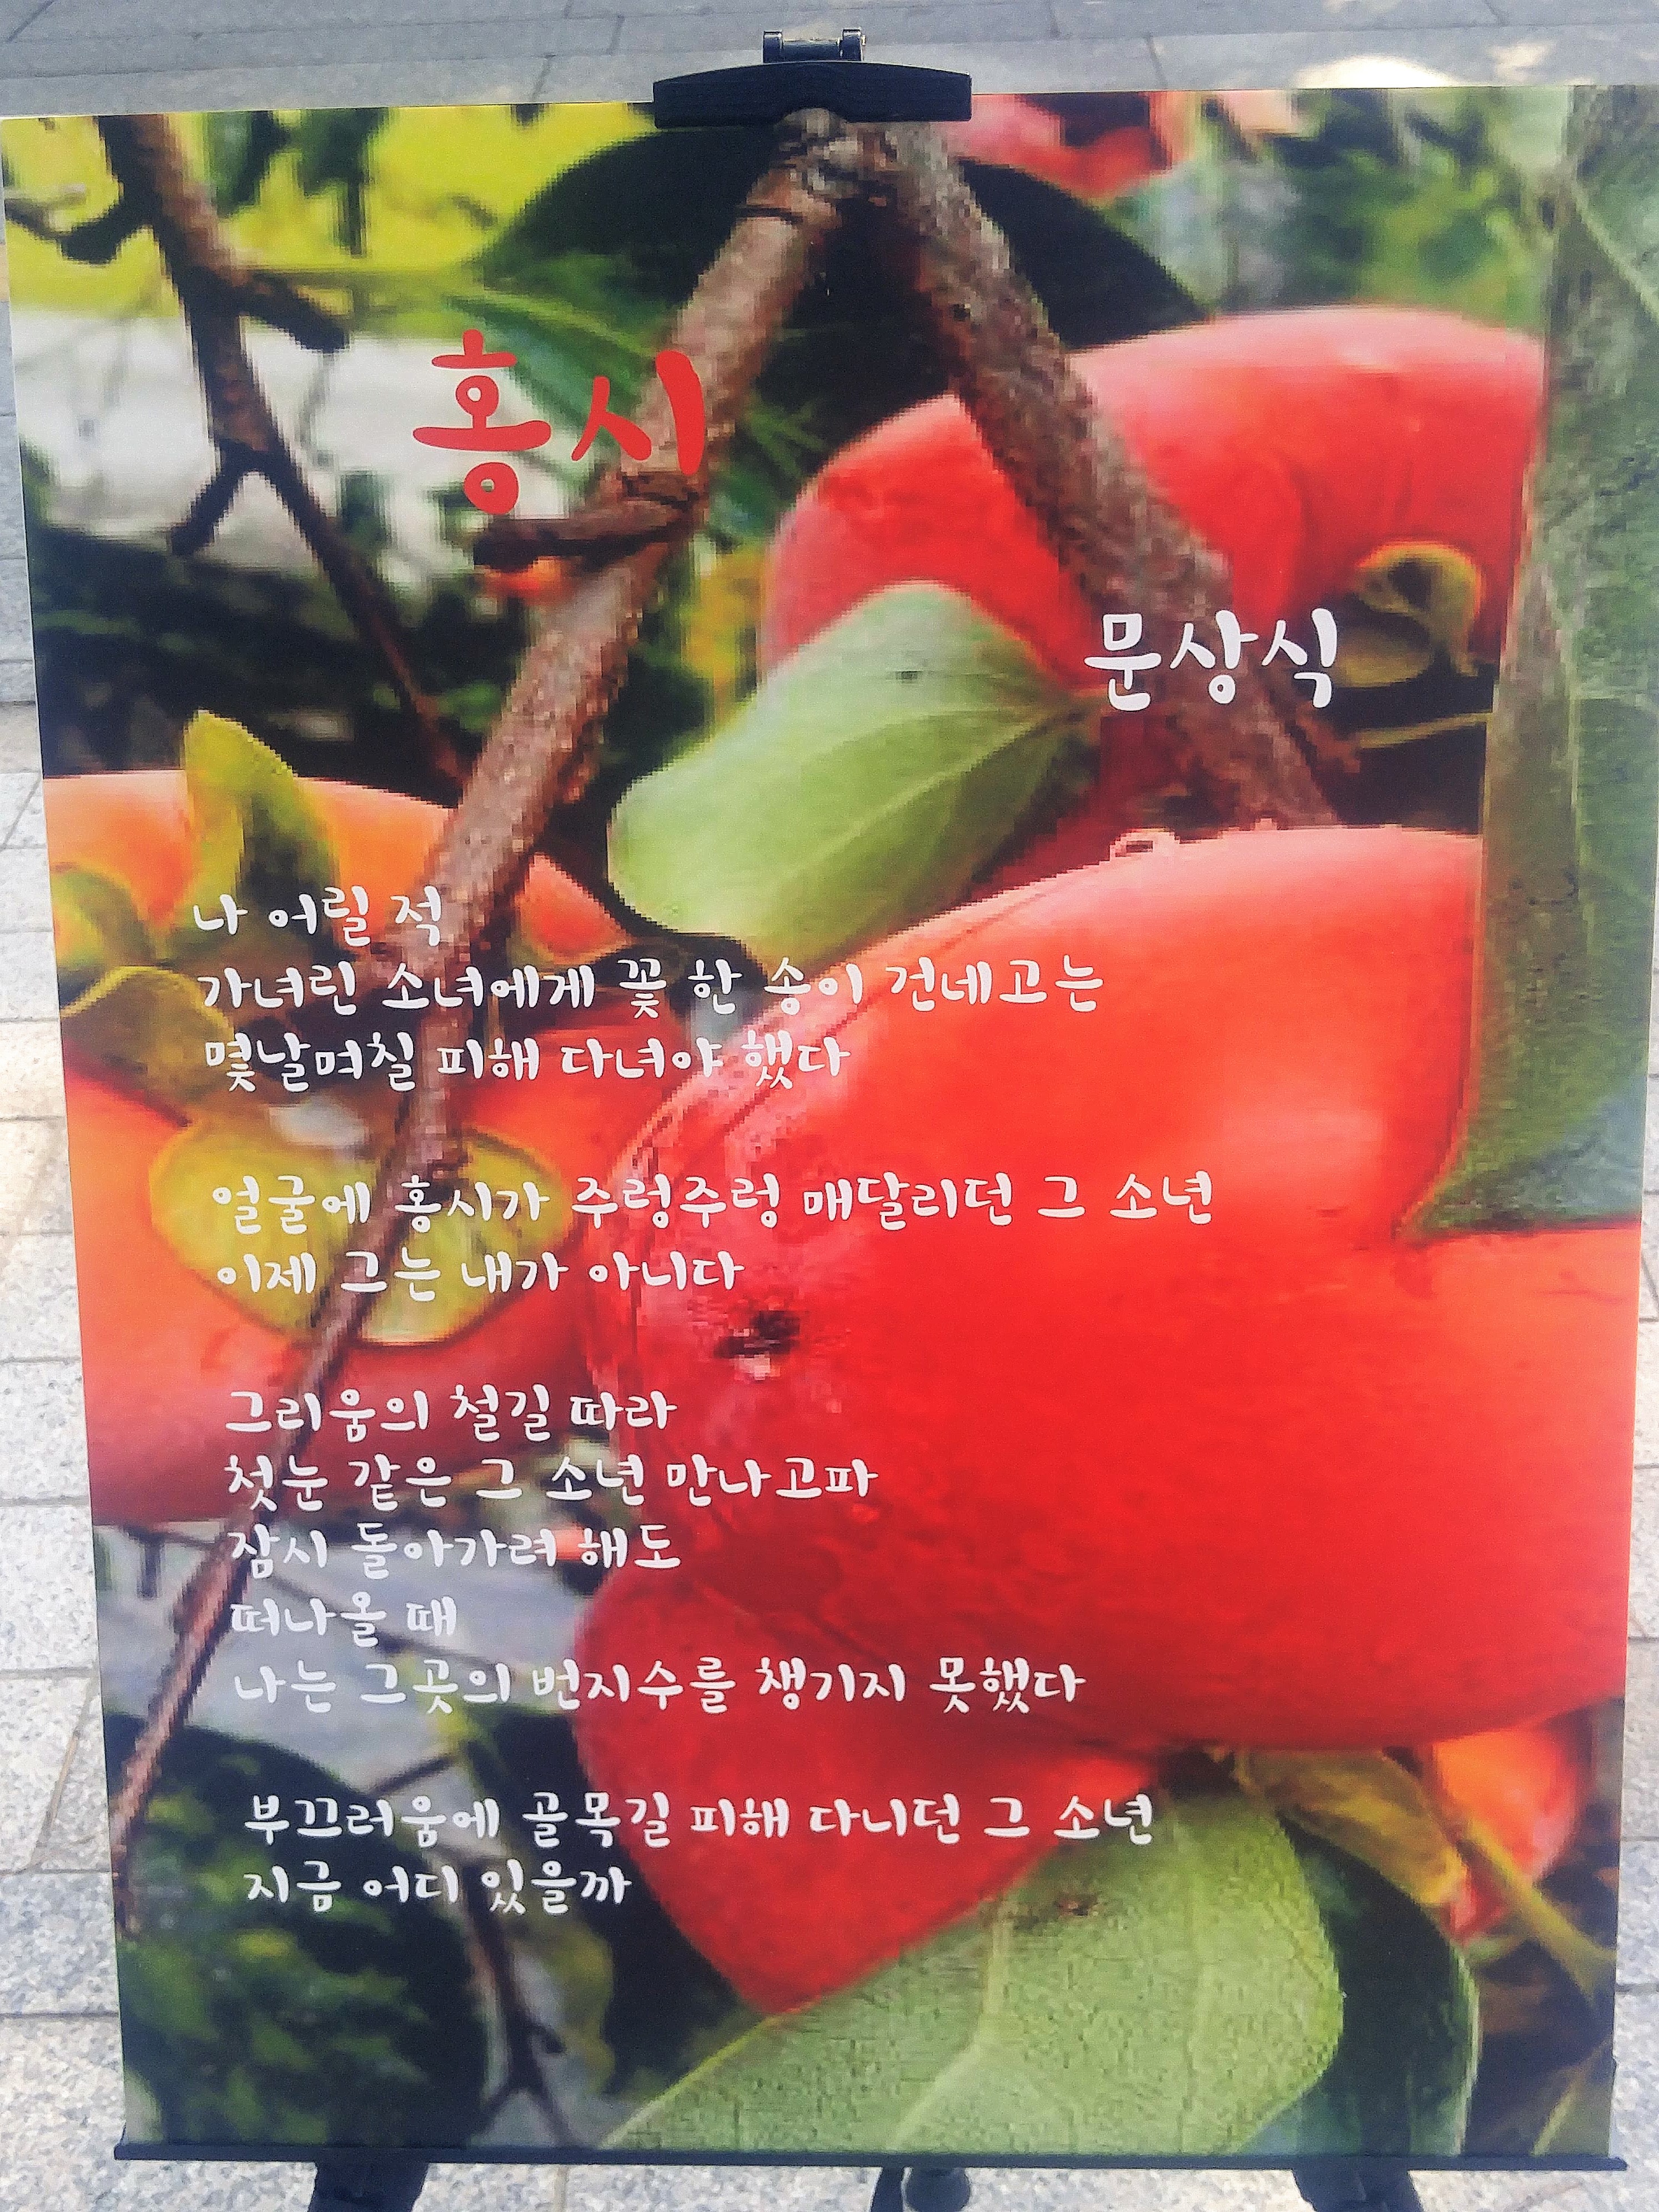 홍시
문상식
나 어릴 적
가녀린 소녀에게 꽃 한 송이 건네고는
몇날며칠 피해 다녀야 했다
얼굴에 홍시가 주렁주렁 매달리던 그 소년
이제 그는 내가 아니다
그리움의 철길 따라
첫눈 같은 그 소년 만나고파
잠시 돌아가려 해도
떠나올 때
나는 그곳의 번지수를 챙기지 못했다
부끄러움에 골목길 피해 다니던 그 소년
지금 어디 있을까